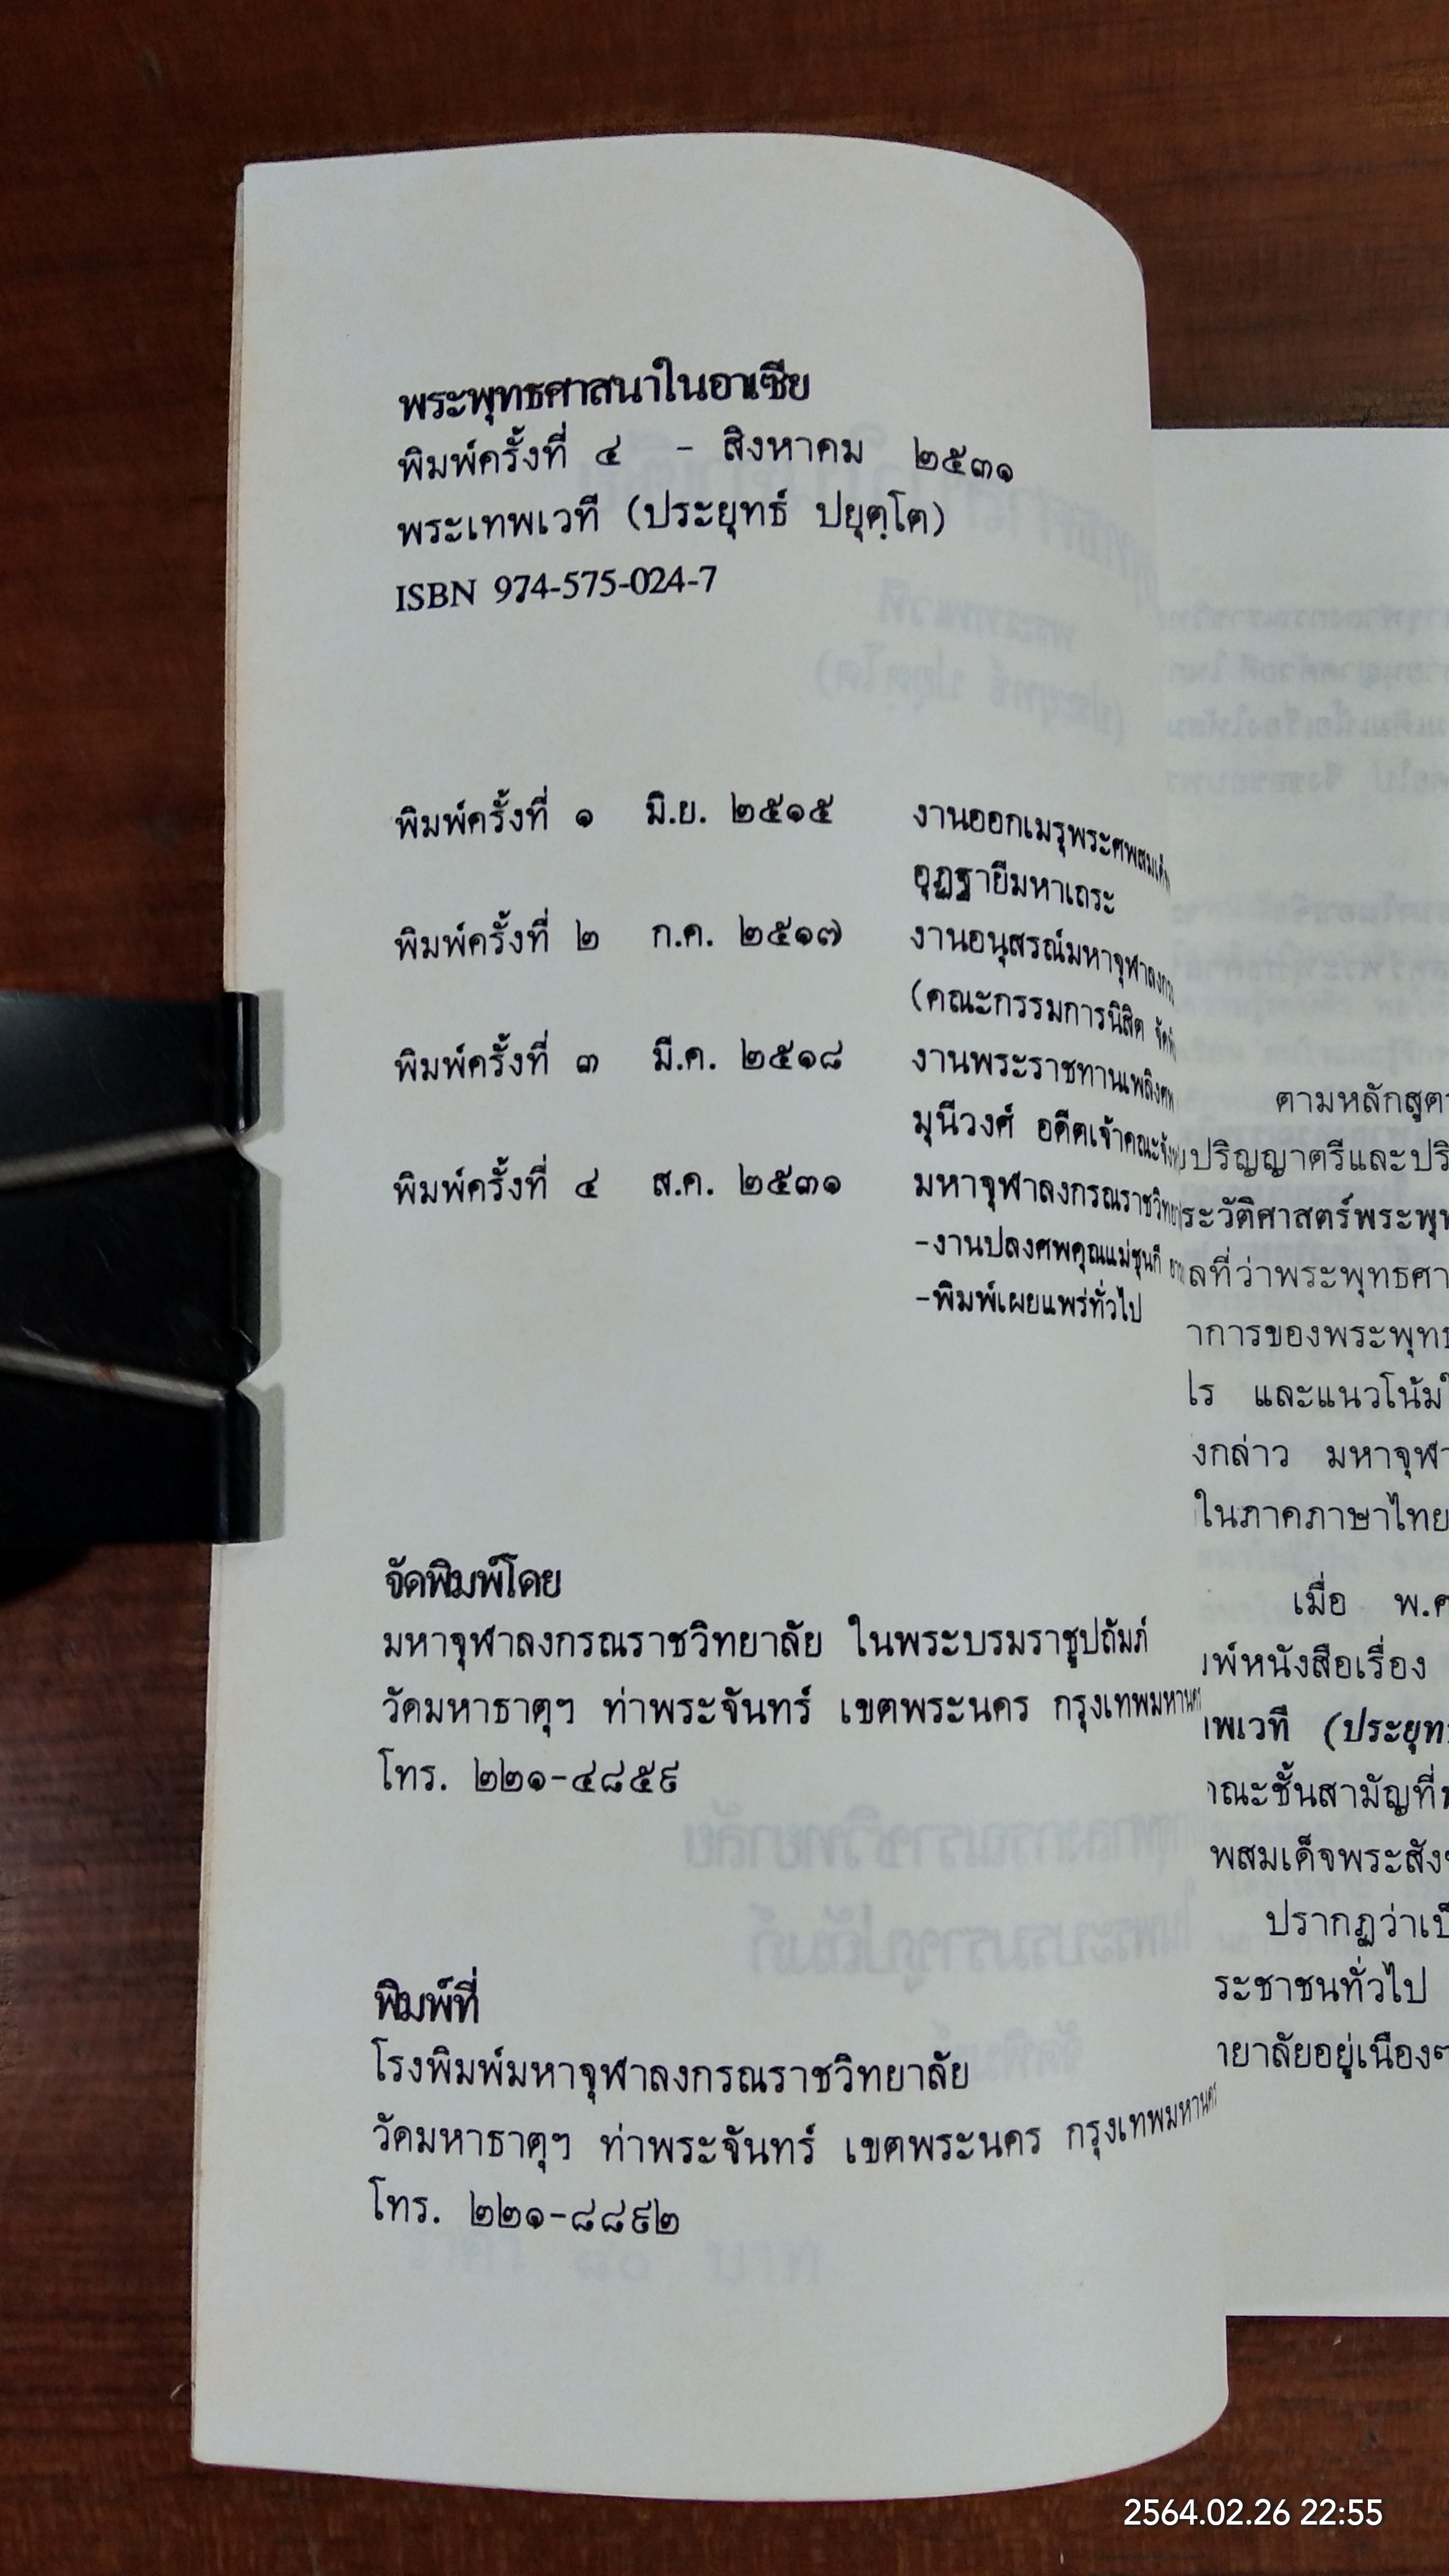 พระพุทธศาสนาในอาเซีย
พิมพ์ครั้งที่ ๔ - สิงหาคม ๒๕๓๑
พระเทพเวที (ประยุทธ์ ปยุตฺโต)
ISBN 974-575-024-7
พิมพ์ครั้งที่ ๑ มิ.ย. ๒๕๑๕ งานออกเมรุพระศพสมเด็จ
อุฏฐายีมหาเถระ
พิมพ์ครั้งที่ ๒ ก.ค. ๒๕๑๗ งานอนุสรณ์มหาจุฬาลงกรณ
(คณะกรรมการนิสิต
พิมพ์ครั้งที่ ๓ มี.ค. ๒๕๑๘ งานพระราชทานเพลิงศพ
มุนีวงศ์ อดีตเจ้าคณะ
พิมพ์ครั้งที่ ๔ ส.ค. ๒๕๓๑ มหาจุฬาลงกรณราชวิทยา
-งานปลงศพคุณแม่ชุนกี
-พิมพ์เผยแพร่ทั่วไป
จัดพิมพ์โดย
มหาจุฬาลงกรณราชวิทยาลัย ในพระบรมราชูปถัมภ์
วัดมหาธาตุฯ ท่าพระจันทร์ เขตพระนคร กรุงเทพมหานคร
โทร. ๒๒๑-๔๘๕๙
พิมพ์ที่
โรงพิมพ์มหาจุฬาลงกรณราชวิทยาลัย
วัดมหาธาตุฯ ท่าพระจันทร์ เขตพระนคร กรุงเทพมหานคร
โทร. ๒๒๑-๘๘๙๒
ตามหลักสูตร
ปริญญาตรีและปริ
ระวัติศาสตร์พระพุท
ลที่ว่าพระพุทธศา
าการของพระพุทธ
ไร และแนวโน้มใ
งกล่าว มหาจุฬา
ในภาคภาษาไทย
เมื่อ พ.ศ
มพ์หนังสือเรื่อง
ทพเวที (ประยุท
าณะชั้นสามัญที่พ
พสมเด็จพระสังฆ
ปรากฏว่าเป็
ระชาชนทั่วไป
ายาลัยอยู่เนืองๆ
2564.02.26 22:55